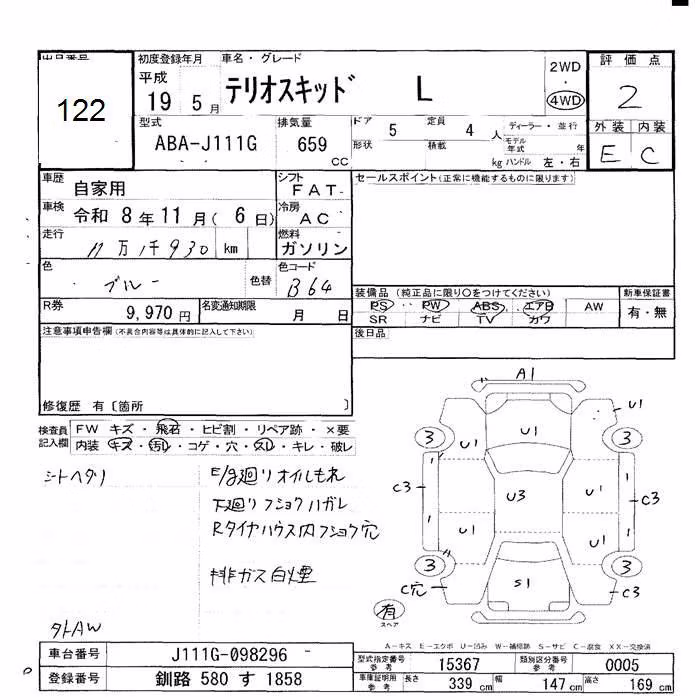 出品番号 初度登録年月 車名・グレード 2WD 評価点
122 平成 19 5月 テリオスキッド L ・ 4WD 2
型式 ABA-J111G 排気量 659 CC ドア 5 定員 4 人 ディーラー・並行 外装 内装
形状 積載 kg モデル年式 年 ハンドル 左・右 E C
車歴 自家用 シフト FAT セールスポイント(正常に機能するものに限ります)
車検 令和 8年 11月( 6日) 冷房 AC
走行 11万1千930 km 燃料 ガソリン
色 ブルー 色替 色コード B64
装備品 (純正品に限り○をつけてください) 新車保証書
R券 9,970円 名変通知期限 月 日 PS PW ABS エアB AW 有・無
SR ナビ TV カワ
注意事項申告欄(不具合内容等は具体的に記入して下さい) 後日品
修復歴 有〔箇所 〕
検査員記入欄 FW キズ・飛石・ヒビ割・リペア跡・×要
内装 キズ・汚レ・コゲ・穴・スレ・キレ・破レ
シートヘタリ E/g廻りオイルもれ
下廻りフショクハガレ
Rタイヤハウス内フショク穴
排ガス白煙
タトAW
A1
U1 U1 U1
3 3
C3 U3 U1 C3
U1 U1
3 3
C穴 S1 C3
有 スペア
A-キズ E-エクボ U-凹み W-補修跡 S-サビ C-腐食 XX-交換済
車台番号 J111G-098296 型式指定番号 参考 15367 類別区分番号 参考 0005
登録番号 釧路 580 す 1858 車庫証明用 参考 長さ 339 cm 幅 147 cm 高さ 169 cm